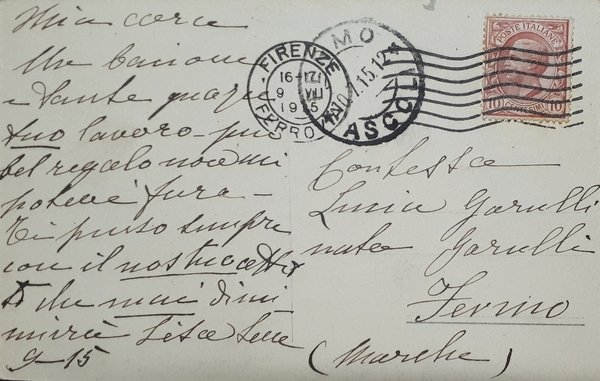 Mia cara
Un bacione
e tante grazie
tuo lavoro - più
bel regalo non mi
potevi fare -
Ti penso sempre
con il nostro affet
to che mai dimi
nuirà
9-15
FIRENZE
FERROVIA
16-17
9 VII
1915
FERMO
ASCOLI
10.7.15.12
POSTE ITALIANE
10 10
Contessa
Lucia Garulli
nata Garulli
Fermo
(Marche)